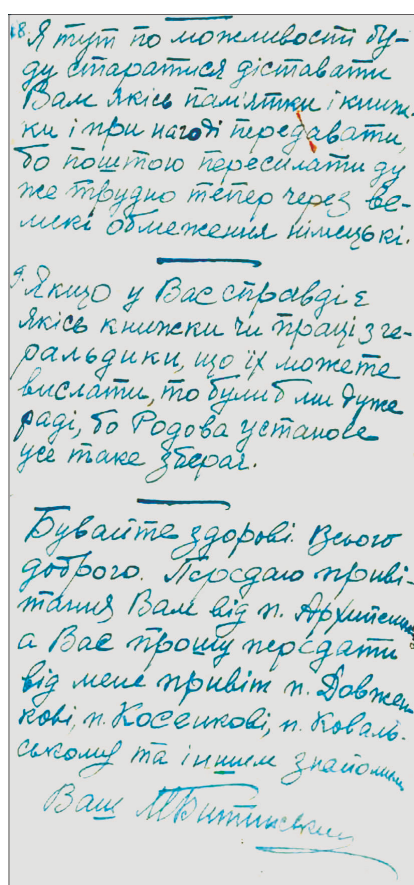 8. Я тут по можливості бу-
ду старатися діставати
Вам якісь пам'ятки і книж-
ки і при нагоді передавати,
бо поштою пересилати ду
же трудно тепер через ве-
ликі обмеження німецькі.
9. Якщо у Вас справді є
якісь книжки чи праці з ге-
ральдики, що їх можете
вислати, то були б ми дуже
раді, бо Родова установа
усе таке збірає.
Бувайте здорові. Всього
доброго. Передаю приві-
тання Вам від п. Архипенка
а Вас прошу передати
від мене привіт п. Довжен
кові, п. Косенкові, п. Коваль-
ському та іншим знайомим
Ваш М Битинський